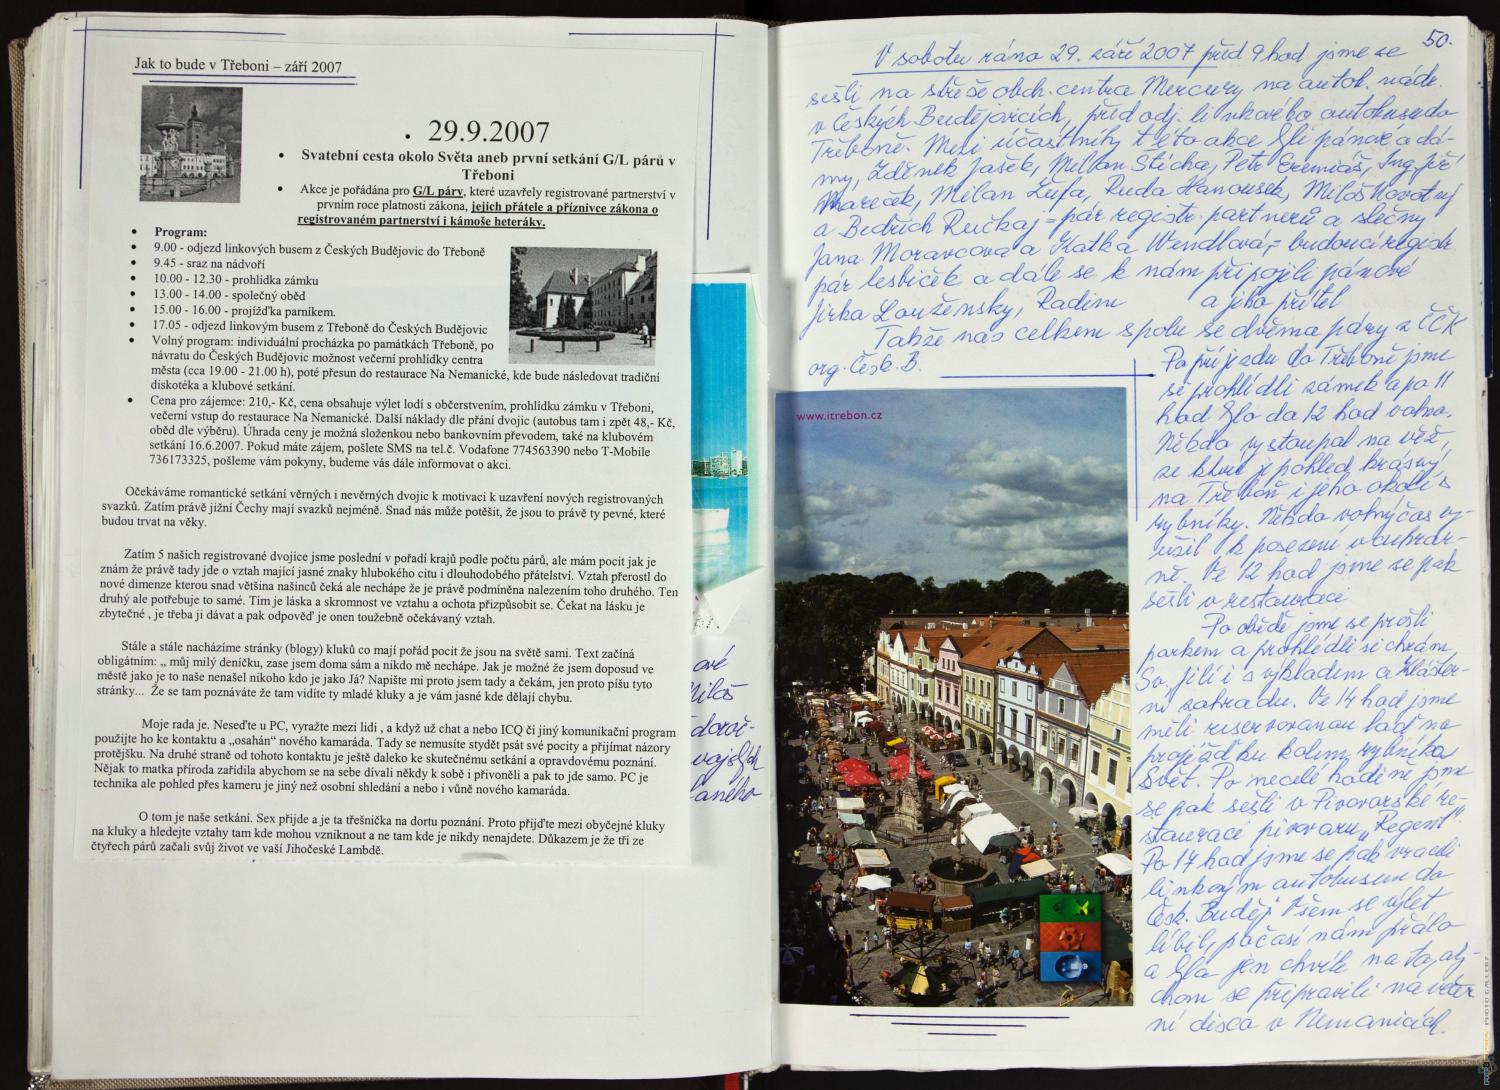 Jak to bude v Třeboni – září 2007
• 29.9.2007
• Svatební cesta okolo Světa aneb první setkání G/L párů v
Třeboni
• Akce je pořádána pro G/L páry, které uzavřely registrované partnerství v
prvním roce platnosti zákona, jejich přátele a příznivce zákona o
registrovaném partnerství i kámoše heteráky.
• Program:
• 9.00 - odjezd linkových busem z Českých Budějovic do Třeboně
• 9.45 - sraz na nádvoří
• 10.00 - 12.30 - prohlídka zámku
• 13.00 - 14.00 - společný oběd
• 15.00 - 16.00 - projížďka parníkem.
• 17.05 - odjezd linkovým busem z Třeboně do Českých Budějovic
• Volný program: individuální procházka po památkách Třeboně, po
návratu do Českých Budějovic možnost večerní prohlídky centra
města (cca 19.00 - 21.00 h), poté přesun do restaurace Na Nemanické, kde bude následovat tradiční
diskotéka a klubové setkání.
• Cena pro zájemce: 210,- Kč, cena obsahuje výlet lodí s občerstvením, prohlídku zámku v Třeboni,
večerní vstup do restaurace Na Nemanické. Další náklady dle přání dvojic (autobus tam i zpět 48,- Kč,
oběd dle výběru). Úhrada ceny je možná složenkou nebo bankovním převodem, také na klubovém
setkání 16.6.2007. Pokud máte zájem, pošlete SMS na tel.č. Vodafone 774563390 nebo T-Mobile
736173325, pošleme vám pokyny, budeme vás dále informovat o akci.
Očekáváme romantické setkání věrných i nevěrných dvojic k motivaci k uzavření nových registrovaných
svazků. Zatím právě jižní Čechy mají svazků nejméně. Snad nás může potěšit, že jsou to právě ty pevné, které
budou trvat na věky.
Zatím 5 našich registrované dvojice jsme poslední v pořadí krajů podle počtu párů, ale mám pocit jak je
znám že právě tady jde o vztah mající jasné znaky hlubokého citu i dlouhodobého přátelství. Vztah přerostl do
nové dimenze kterou snad většina našinců čeká ale nechápe že je právě podmíněna nalezením toho druhého. Ten
druhý ale potřebuje to samé. Tím je láska a skromnost ve vztahu a ochota přizpůsobit se. Čekat na lásku je
zbytečné , je třeba ji dávat a pak odpověď je onen toužebně očekávaný vztah.
Stále a stále nacházíme stránky (blogy) kluků co mají pořád pocit že jsou na světě sami. Text začíná
obligátním: „ můj milý deníčku, zase jsem doma sám a nikdo mě nechápe. Jak je možné že jsem doposud ve
městě jako je to naše nenašel nikoho kdo je jako Já? Napište mi proto jsem tady a čekám, jen proto píšu tyto
stránky... Že se tam poznáváte že tam vidíte ty mladé kluky a je vám jasné kde dělají chybu.
Moje rada je. Neseďte u PC, vyražte mezi lidi , a když už chat a nebo ICQ či jiný komunikační program
použijte ho ke kontaktu a „osahán“ nového kamaráda. Tady se nemusíte stydět psát své pocity a přijímat názory
protějšku. Na druhé straně od tohoto kontaktu je ještě daleko ke skutečnému setkání a opravdovému poznání.
Nějak to matka příroda zařídila abychom se na sebe dívali někdy k sobě i přivoněli a pak to jde samo. PC je
technika ale pohled přes kameru je jiný než osobní shledání a nebo i vůně nového kamaráda.
O tom je naše setkání. Sex přijde a je ta třešnička na dortu poznání. Proto přijďte mezi obyčejné kluky
na kluky a hledejte vztahy tam kde mohou vzniknout a ne tam kde je nikdy nenajdete. Důkazem je že tři ze
čtyřech párů začali svůj život ve vaší Jihočeské Lambdě.
ové
Miloš
doroč-
vajších
laného
50.
V sobotu ráno 29. září 2007 před 9 hod jsme se
sešli na střeše obch. centra Mercury na autob. nádr.
v Českých Budějovicích, před odj. linkového autobusu do
Třeboně. Mezi účastníky této akce byli pánové a dá-
my, Zděnek Jašek, Milan Stícha, Petr Eremiáš, Ing. Jiří
Mareček, Milan Lufa, Ruda Hanousek, Miloš Novotný
a Bedřich Ručkaj = pár registr. partnerů a slečny
Jana Moravcova a Katka Wendlová, = budoucí registr.
pár lesbiček a dále se k nám připojili pánové
Jirka Louženský, Radim a jeho přítel
Takže nás celkem spolu se dvěma páry z ČČK
org. Česk. B.
Po příjezdu do Třeboně jsme
si prohlédli zámek a po 11
hod bylo do 12 hod volno.
Někdo vystoupal na věž,
ze které je pohled krásný
na Třeboň i jeho okolí s
rybníky. Někdo volný čas vy-
užil k posezení v cukrár-
ně. Ve 12 hod jsme se pak
sešli v restauraci
Po obědě jsme se prošli
parkem a prohlédli si chrám
Sv. Jiljí s výkladem a klášter-
ní zahradu. Ve 14 hod jsme
měli reservovanou loď na
projížďku kolem rybníka
Svět. Po necelé hodině jsme
se pak sešli v Pivovarské re-
stauraci pivovaru „Regent“.
Po 17 hod jsme se pak vraceli
linkovým autobusem do
Česk. Buděj. Všem se výlet
líbil, počasí nám přálo
a byla jen chvíle na to, aby-
chom se připravili na večer
ní disco v Nemanicích.
www.itrebon.cz